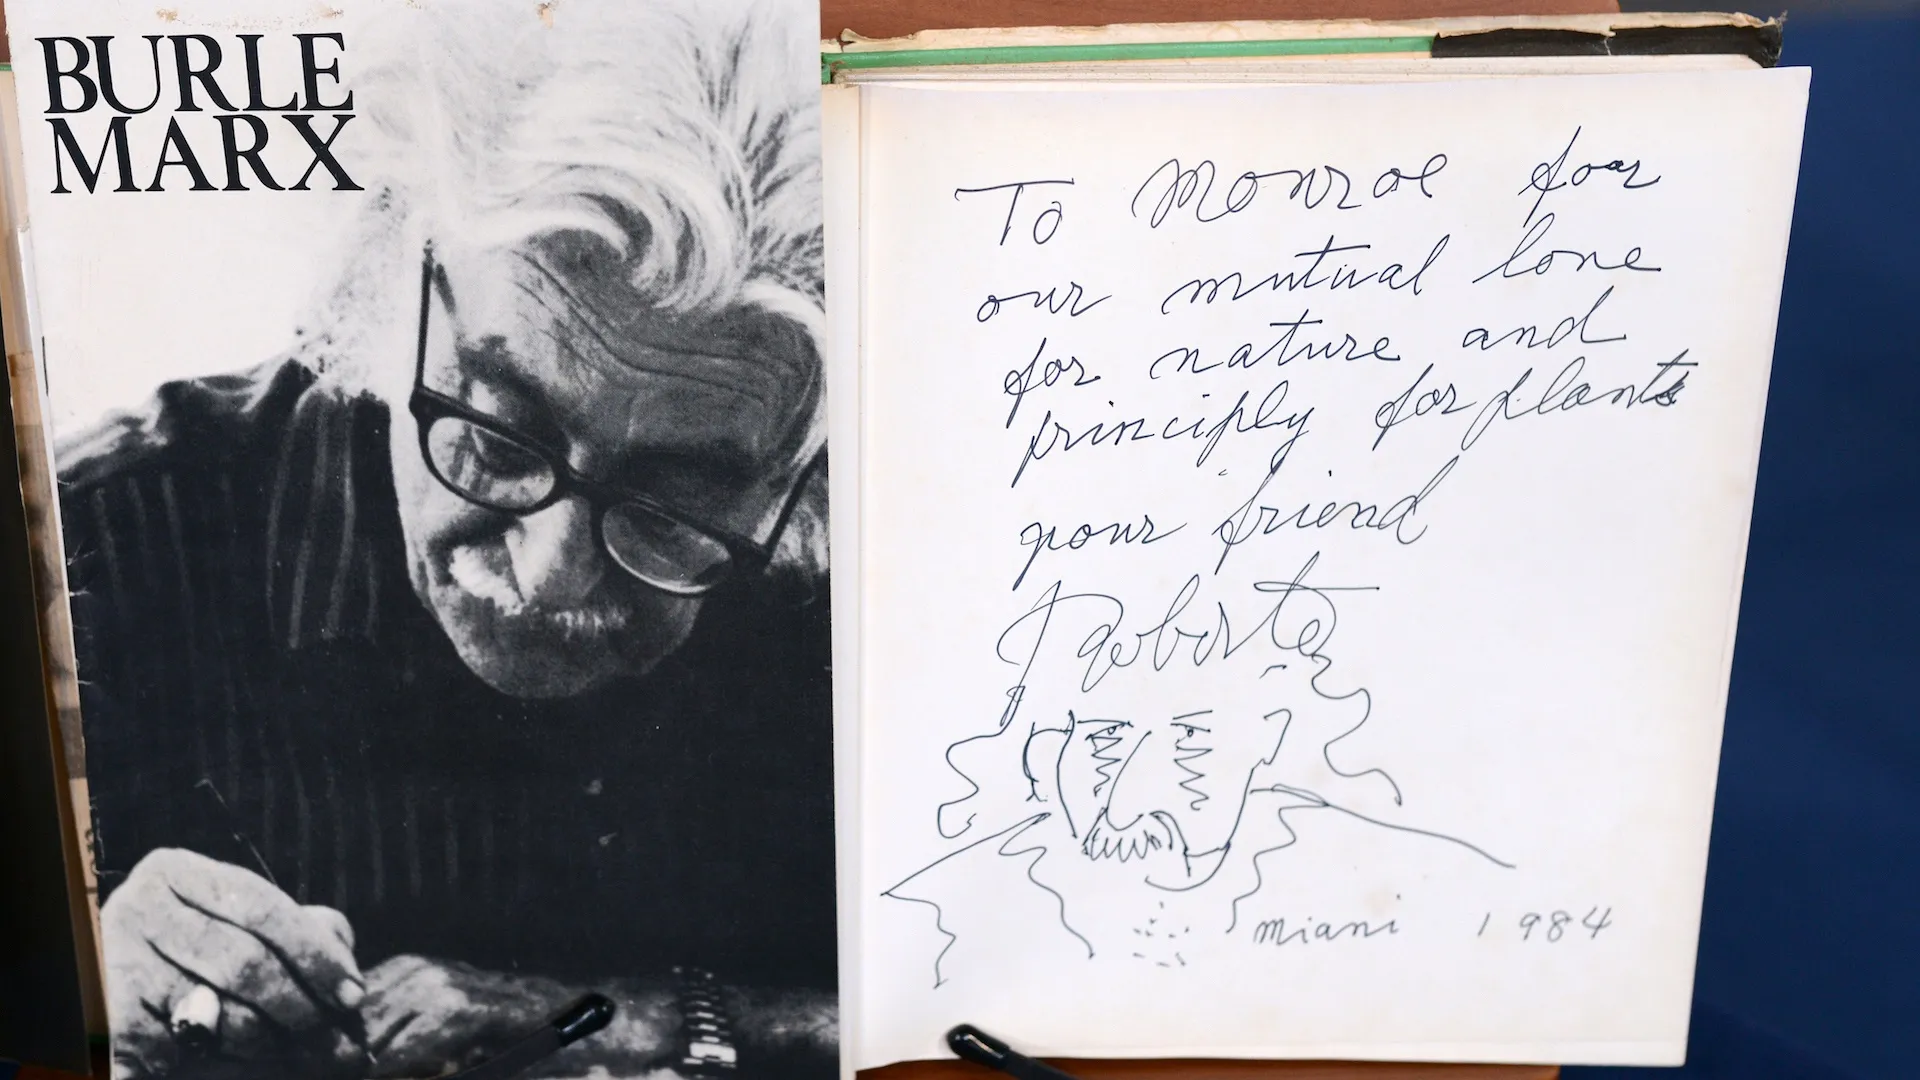 BURLE
MARX
To Monroe foar
our mutual love
for nature and
principly for plants
your friend
Roberto
miami 1984